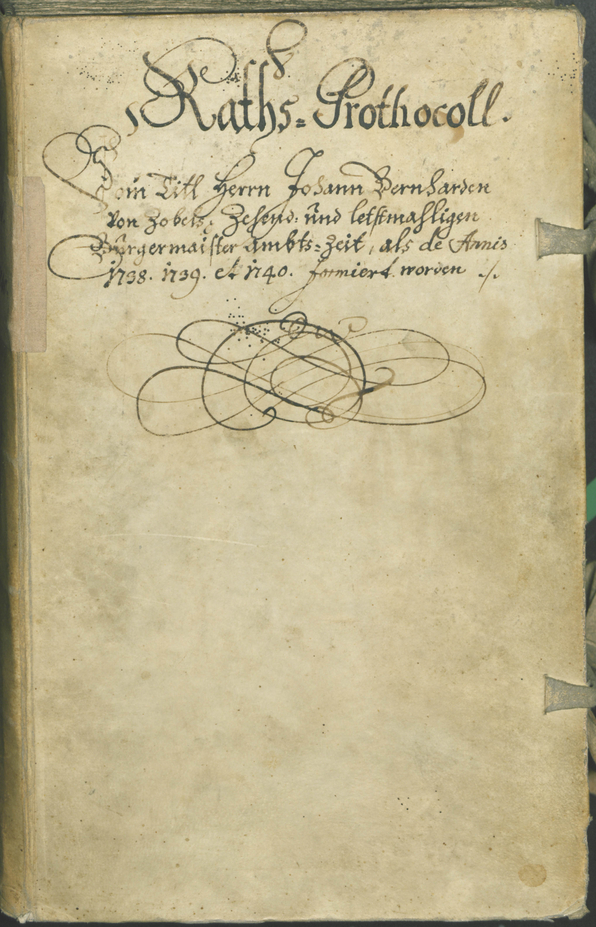 Raths=Prothocoll.
Vom Titl Herrn Johann Bernharden
Von Zobels, Zehend= und letstmahligen
Bürgermaister Ambts=Zeit, als de Annis
1738. 1739. et 1740. formiert worden ./.